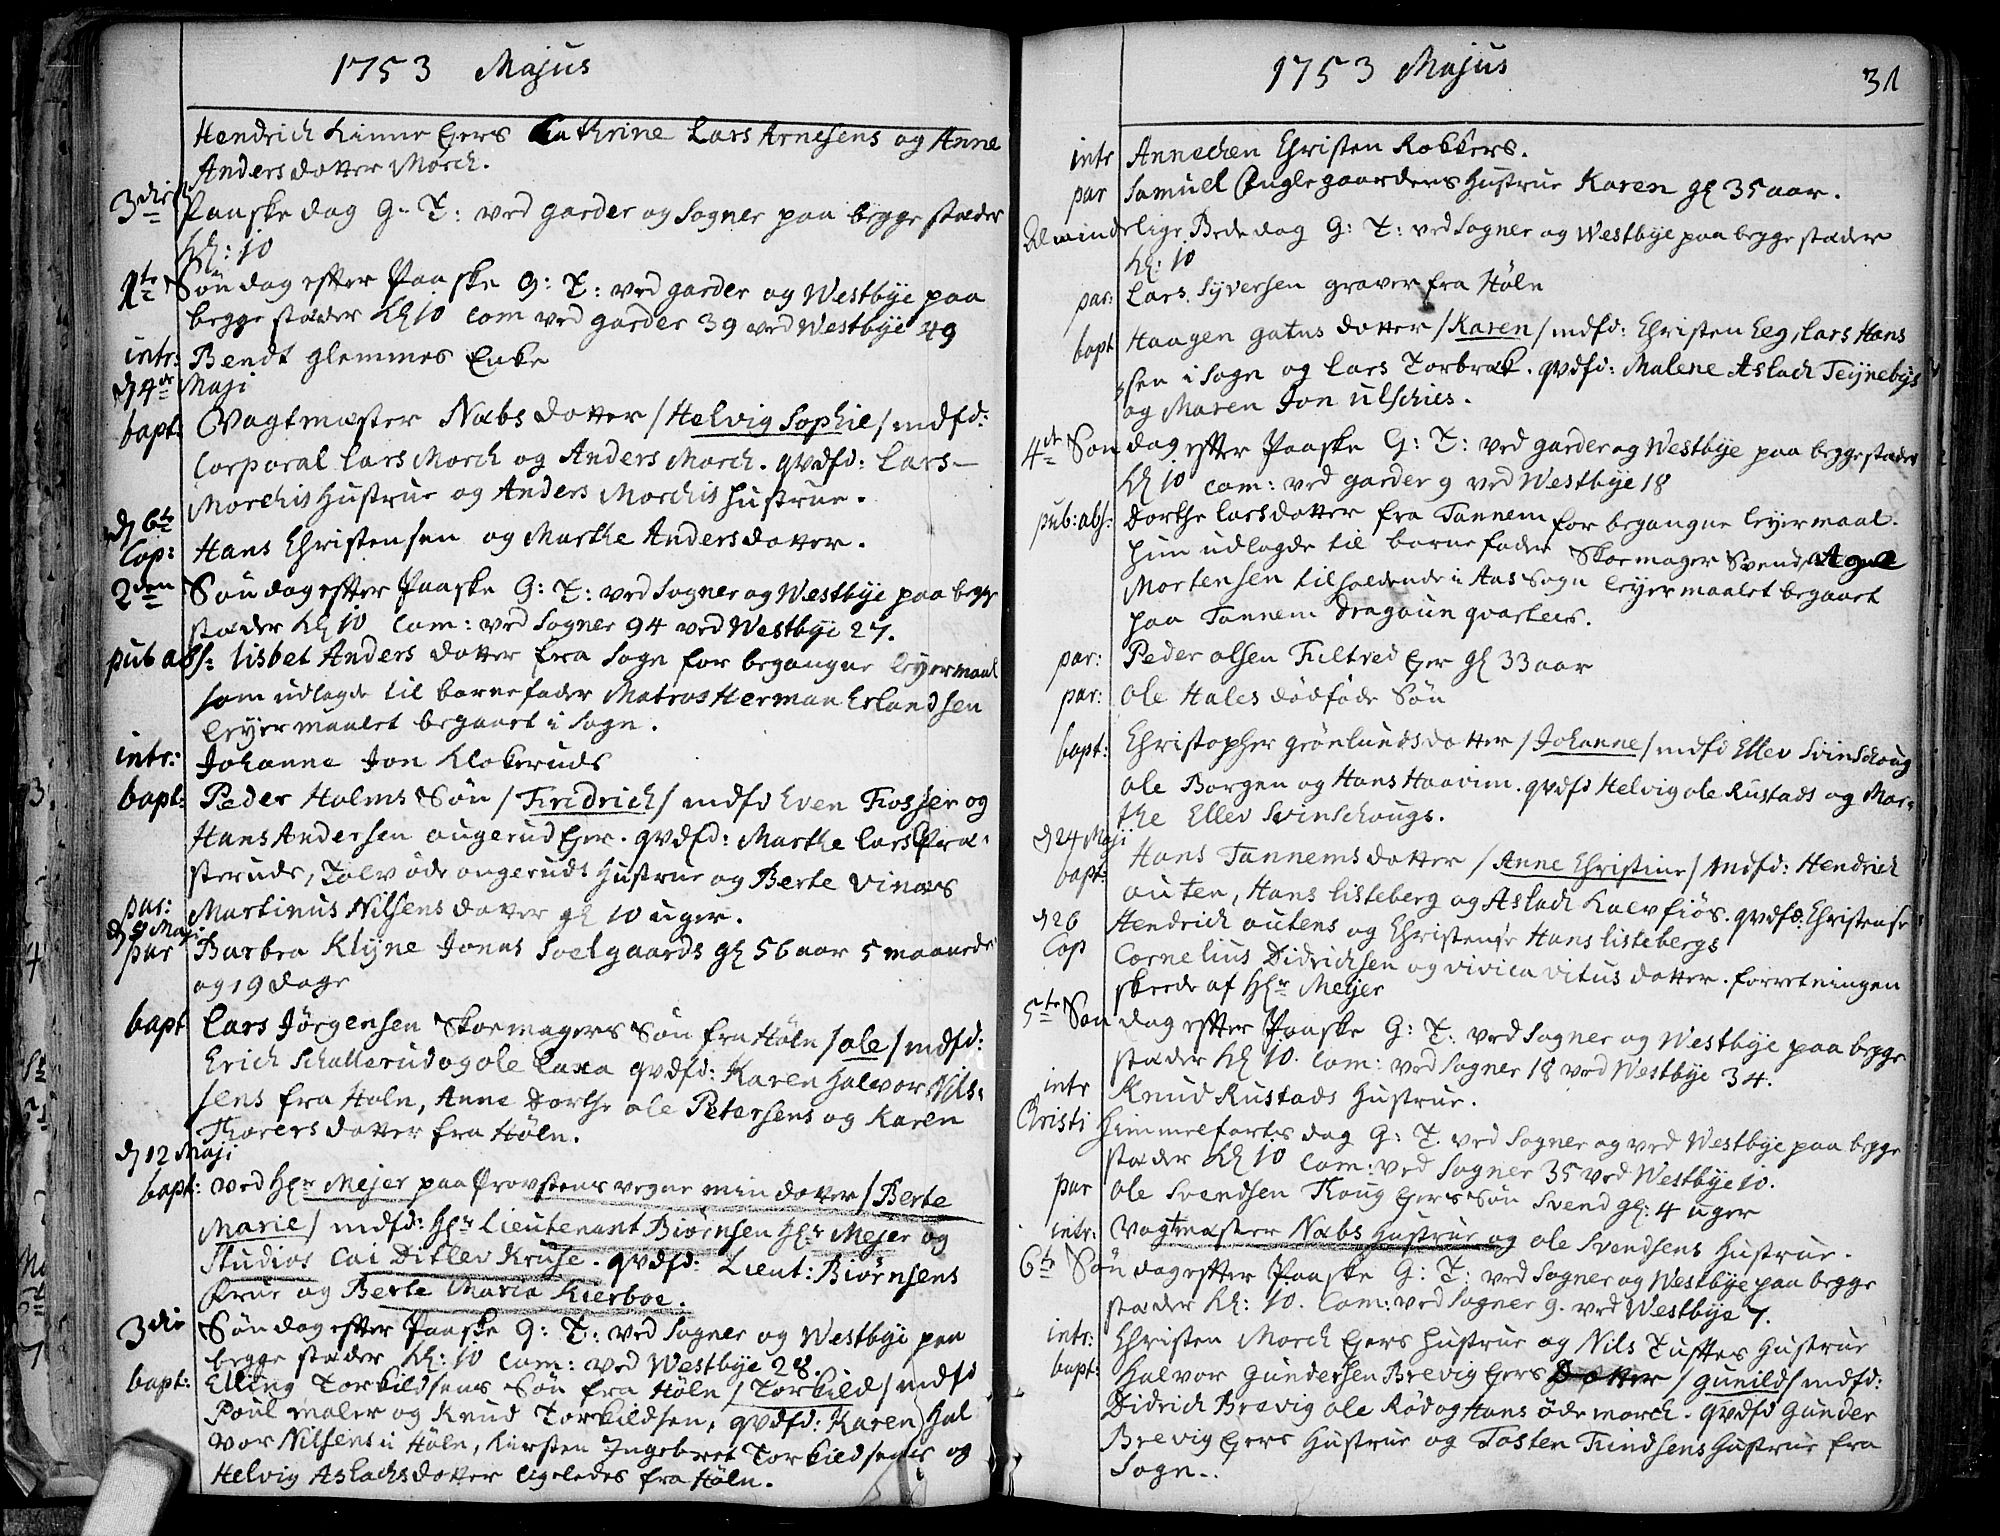 1753 Majus
Hendrich Kinne Eyers Cathrine Lars Arnesens og Anne
Andersdotter Mörch.
3die Paaske dag G: T: ved garder og Sogner paa begge stæder
Kl: 10
1te Söndag efter Paaske G: T: ved garder og Westbye paa
begge stæder Kl 10 Com ved garder 39 ved Westbye 49
intr: Bendt Glemmes Enke
d 4de Maji
bapt: Vagtmæster Næbs dotter /Helvig Sophie/ mdfd:
Corporal Lars Morch og Anders Morch. qvdfd: Lars
Morchis Hustrue og Anders Morchis Hustrue.
d 6te
Cop: Hans Christensen og Marthe Andersdotter.
2den Söndag efter Paaske G: T: ved Sogner og Westbye paa begge
stæder Kl 10 Com: ved Sogner 94 ved Westbye 27.
pub abs: Lisbet Anders dotter fra Sogn for begangne leyermaal
som udlagde til barnefader Matros Herman Erlandsen
leyermaalet begaaet i Sogn.
intr: Johanne Jon Klokeruds
bapt: Peder Holms Sön /Fridrich/ mdfd Even Fosser og
Hans Andersen Augerud Eyer. qvdfd: Marthe Lars Præ-
sterude, Tolv öde augeruds Hustrue og Berte Vinæs
par: Martinus Nilsens dotter gl 10 uger.
d 9 Maji
par Barbra Klyne Jonas Soelgaards gl 56 aar 5 maaneder
og 19 dage
bapt Lars Jörgensen Skoemagers Sön fra Höln /Ole/ mdfd:
Erich Schallerud og Ole Laxa qvdfd: Karen Halvor Nils-
sens fra Höln, Anne Dorthe Ole Petersens og Karen
Thorersdotter fra Höln.
d 12 Maji
bapt: ved Hr Mejer paa Provstens vegne min dotter /Berte
Marie/ mdfd: Hr Lieutenant Biörnsen Hr Mejer og
Studios Cai Ditlev Kruse. qvdfd: Lieut: Biörnsens
Frue og Berte Maria Kierboe.
3die Söndag efter Paaske G: T: ved Sogner og Westbye paa
begge stæder Kl: 10 Com: ved Westbye 28.
bapt: Elling Torkildsens Sön fra Höln /Torkild/ mdfd
Poul maler og Knud Torkildsen, qvdfd: Karen Hal
vor Nilsens i Höln, Kirsten Ingebret Torkildsens og
Helvig Aslachsdotter ligeledes fra Höln.
1753 Majus 31
intr Annechen Christen Rokkers.
par Samuel Englegaarders Hustrue Karen gl 35 aar.
Almindelige Bededag G: T: ved Sogner og Westbye paa begge stæder
Kl: 10
par: Lars Syversen graver fra Höln
bapt Haagen gatus dotter /Karen/ mdfd: Christen Eeg, Lars Hans
sen i Sogn og Lars Torbræk. qvdfd: Malene Aslach Teynebys
og Maren Jon Ulschies.
4de Söndag efter Paaske G: T: ved garder og Westbye paa begge stæder
Kl 10 Com: ved garder 9 ved Westbye 18
pub: abs: Dorthe Larsdotter fra Tannem for begangne leyermaal.
hun udlagde til barnefader Skoemager Svend Aage
Mortensen tilholdende i Aas Sogn leyermaalet begaaet
paa Tannem Dragoun qvarteer.
par: Peder Olsen Filtved Eyer gl 33 aar
par: Ole Hales dödföde Sön
bapt: Christopher Grönlunds dotter /Johanne/ mdfd Ellev Svinschoug
Ole Borgen og Hans Haavim. qvdfd Helvig Ole Rustads og Mar-
the Ellev Svinschougs.
d 24 Maji
bapt: Hans Tannems dotter /Anne Christine/ mdfd: Hendrich
Outen, Hans Listeberg og Aslach Kalvfiös. qvdfd: Christense
d 26 Hendrich Outens og Christense Hans Listebergs
Cop Cornelius Didrichsen og Vivica Vitus dotter. forretningen
skeede af Hr Mejer
5te Söndag efter Paaske G: T: ved Sogner og Westbye paa begge
stæder Kl 10. Com: ved Sogner 18 ved Westbye 34.
intr Knud Rustads Hustrue.
Christi Himmelfarts dag G: T. ved Sogner og ved Westbye paa begge
stæder Kl 10 Com: ved Sogner 35 ved Westbye 10.
par Ole Svendsen Skoug Eyers Sön Svend gl: 4 uger
intr: Vagtmæster Næbs Hustrue og Ole Svendsens Hustrue.
6te Söndag efter Paaske G: T: ved Sogner og Westbye paa begge
stæder Kl: 10. Com: ved Sogner 9. ved Westbye 7.
intr: Christen Morch Eyers Hustrue og Nils Tuftes Hustrue
bapt: Halvor Gundersen Brevig Eyers Dotter /Gunild/ mdfd:
Didrich Brevig Ole Röd og Hans öde morch. qvdfd Gunder
Brevig Eyers Hustrue og Tosten Trindsens Hustrue fra
Sogn.